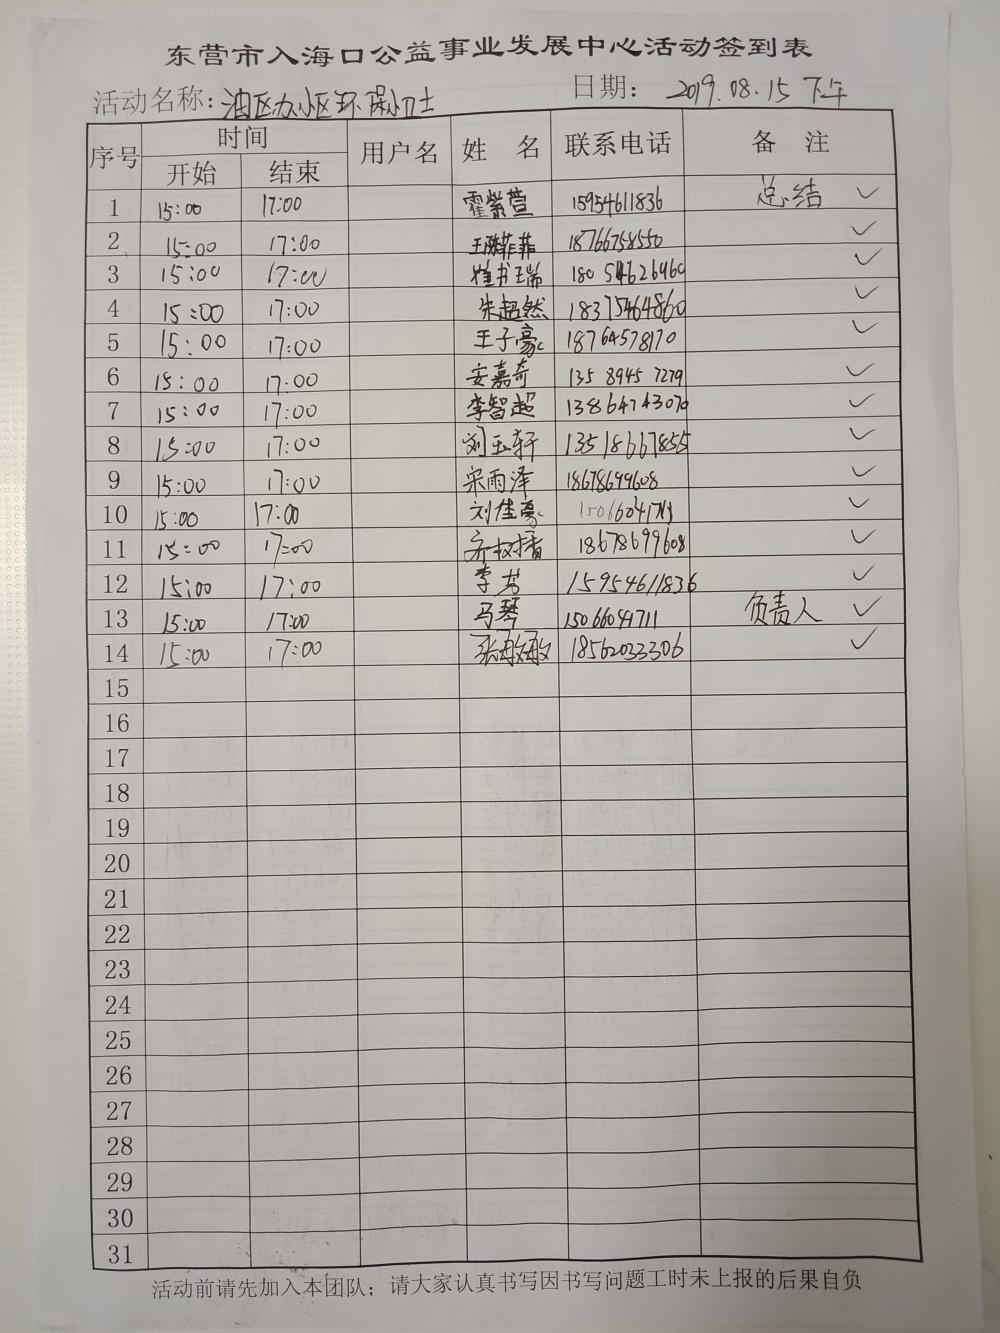 东营市入海口公益事业发展中心活动签到表
活动名称：油区办小区环保小卫士 日期： 2019.08.15 下午
序号 时间 用户名 姓 名 联系电话 备 注
开始 结束
1 15:00 17:00 霍紫萱 15954611836 总结 ✓
2 15:00 17:00 王 菲菲 18766758550 ✓
3 15:00 17:00 崔书瑞 18054626460 ✓
4 15:00 17:00 朱超然 18375464860 ✓
5 15:00 17:00 王子豪 18764578170 ✓
6 15:00 17:00 安嘉奇 135 8945 7279 ✓
7 15:00 17:00 李智超 13864743070 ✓
8 15:00 17:00 刘玉轩 13518667855 ✓
9 15:00 17:00 宋雨泽 18678699608 ✓
10 15:00 17:00 刘佳豪 15066041711 ✓
11 15:00 17:00 18678699608 ✓
12 15:00 17:00 李 15954611836 ✓
13 15:00 17:00 马琴 15066041711 负责人 ✓
14 15:00 17:00 张敏敏 18562033306 ✓
15
16
17
18
19
20
21
22
23
24
25
26
27
28
29
30
31
活动前请先加入本团队；请大家认真书写因书写问题工时未上报的后果自负